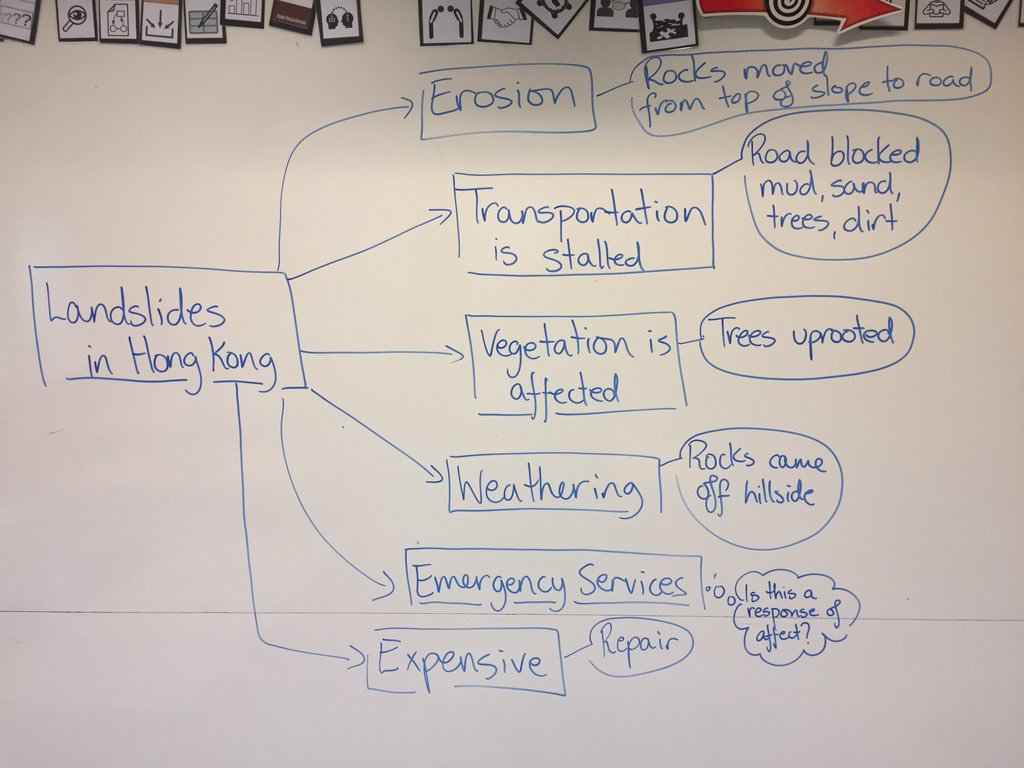 ???
Erosion
Rocks moved
from top of slope to road
Transportation
is stalled
Road blocked
mud, sand,
trees, dirt
Landslides
in Hong Kong
Vegetation is
affected
Trees uprooted
Weathering
Rocks came
off hillside
Emergency Services
Is this a
response of
affect?
Expensive
Repair